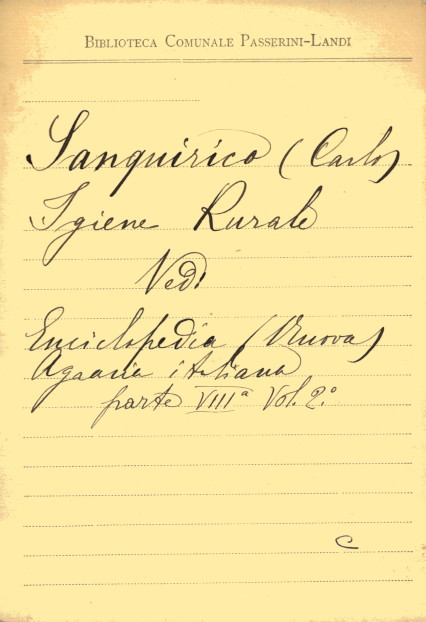 BIBLIOTECA COMUNALE PASSERINI-LANDI
Sanquirico (Carlo)
Igiene Rurale
Vedi
Enciclopedia (Nuova)
Agraria italiana
parte VIIIª Vol. 2.º
C